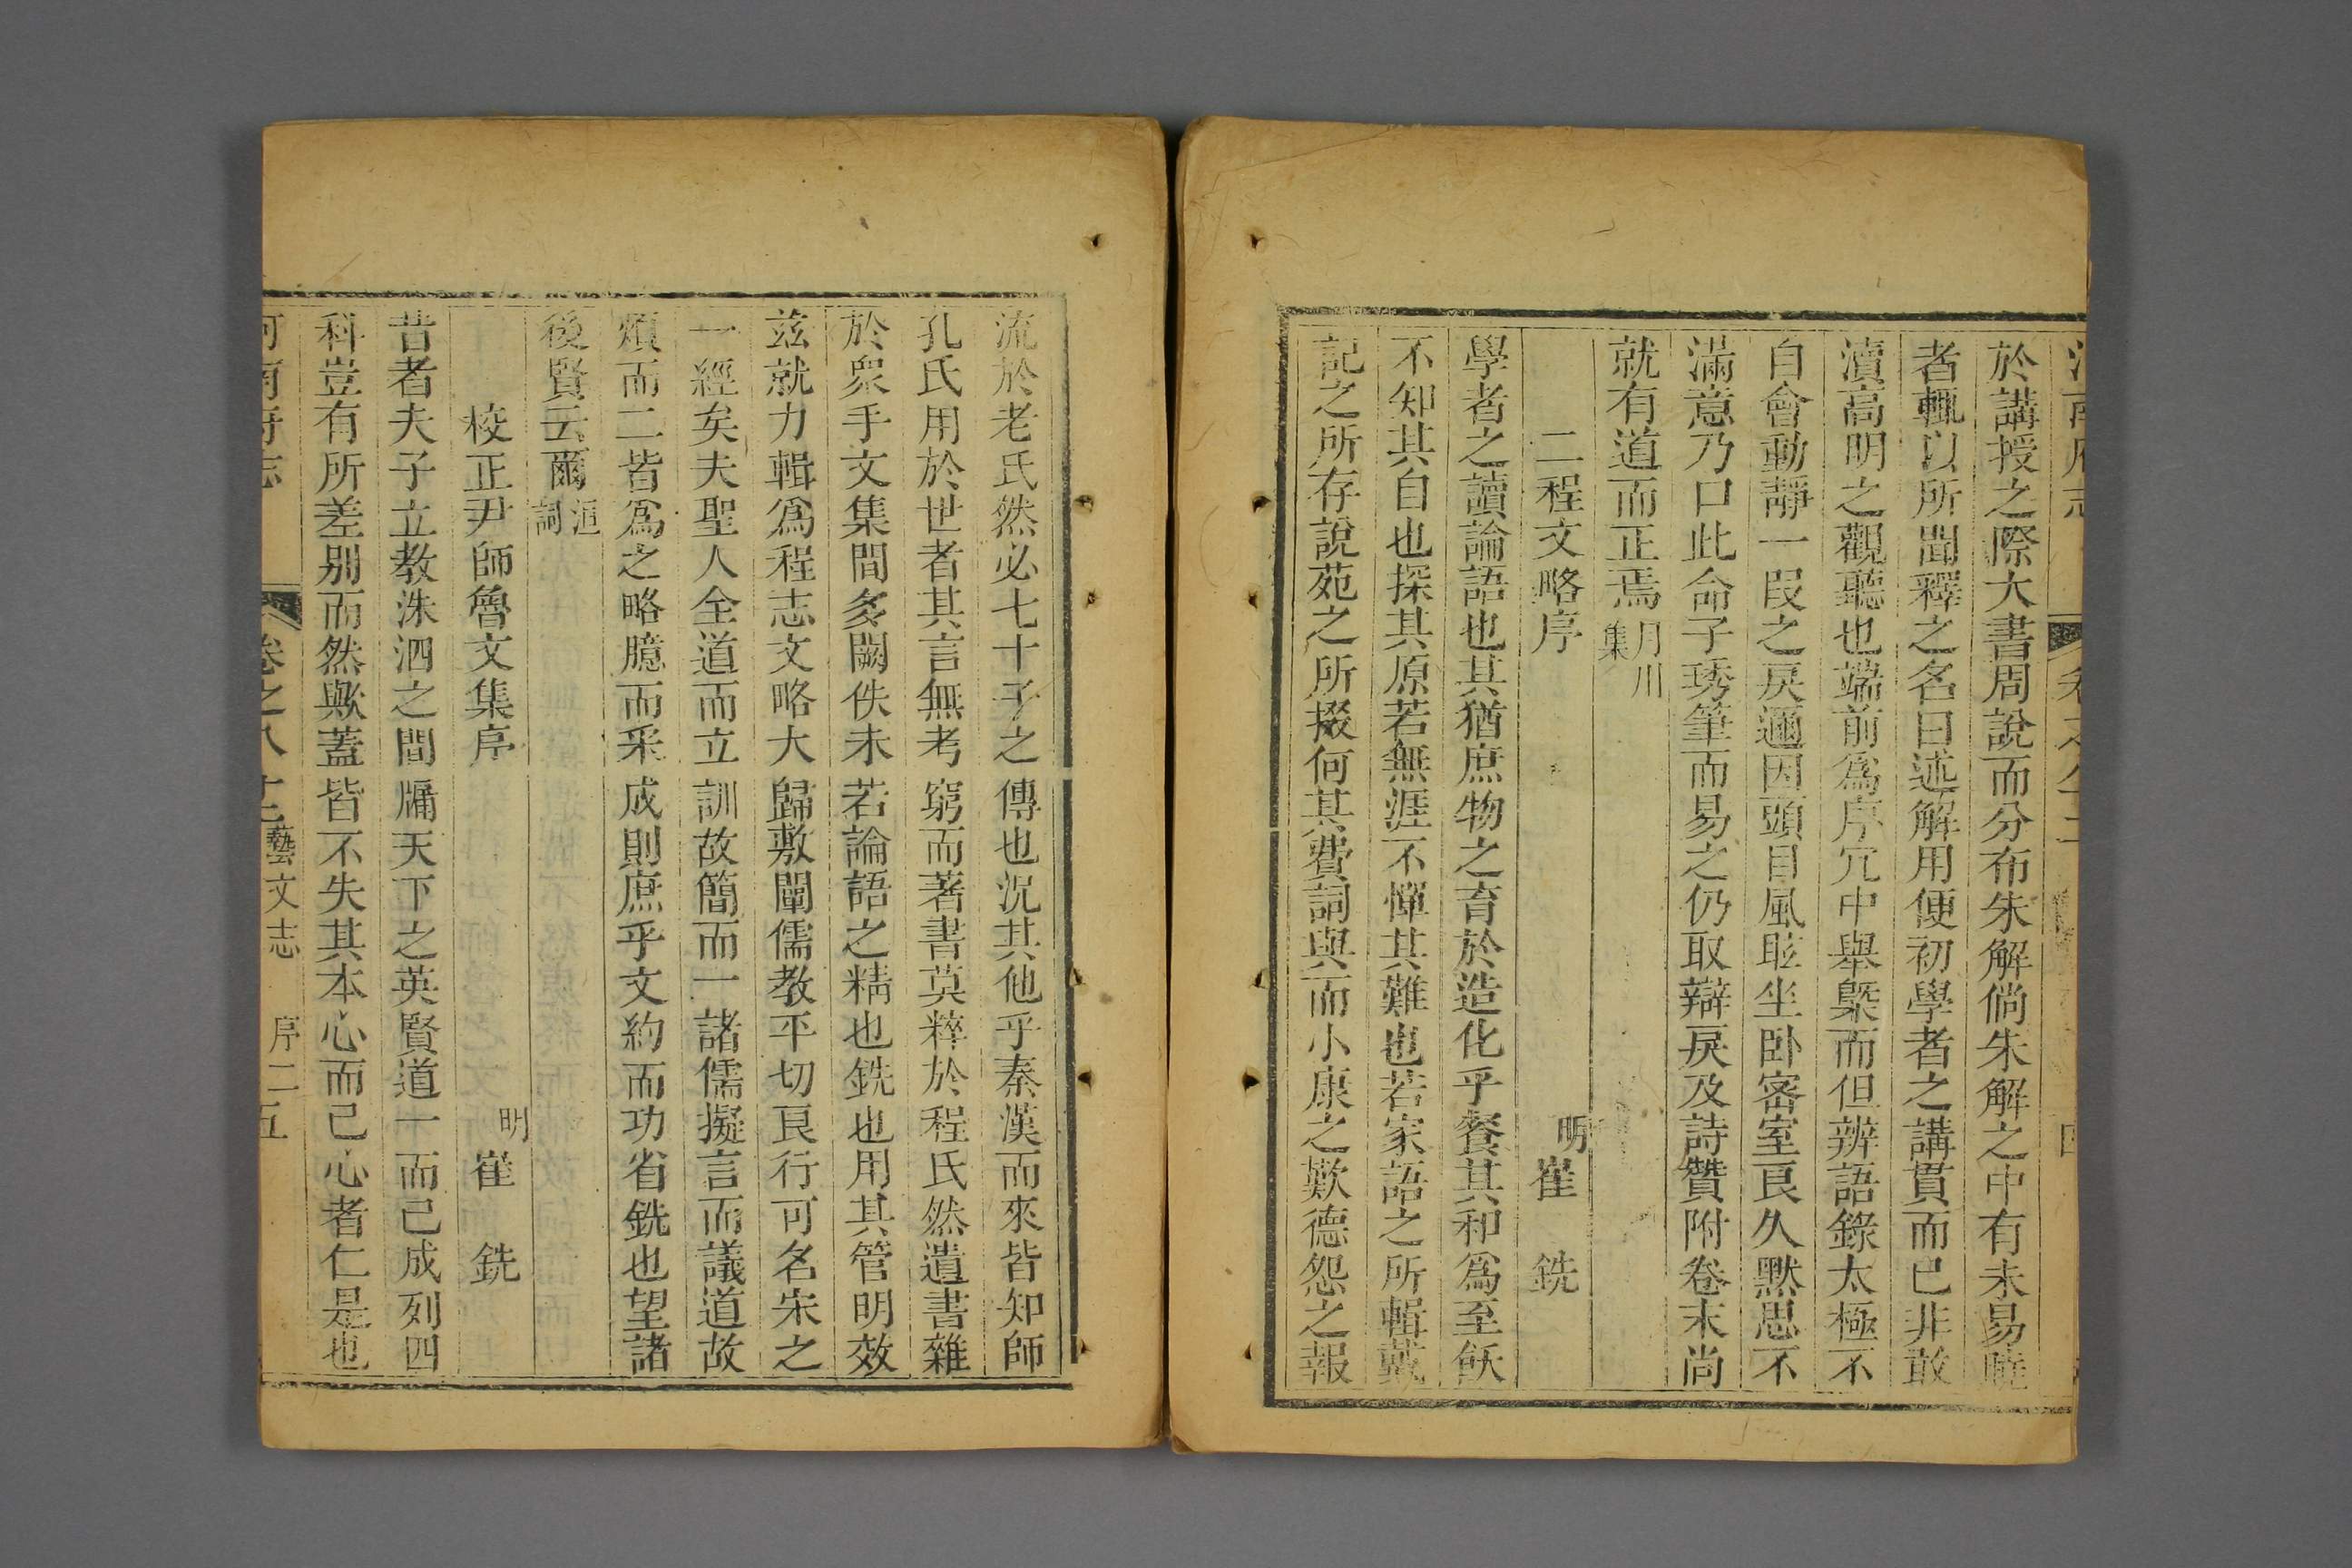 於講授之際大書周說而分布朱解倘朱解之中有未易曉
者輒以所聞釋之名曰述解用便初學者之講貫而已非敢
瀆高明之觀聽也端前為序冗中舉槩而但辨語錄太極不
自會動靜一叚之戾邇因頭目風眩坐卧密室良久默思不
滿意乃口此命子琇筆而易之仍取辯戾及詩贊附卷末尚
就有道而正焉月川集
二程文略序 明崔 銑
學者之讀論語也其猶庶物之育於造化乎餐其和爲至飫
不知其自也探其原若無涯不憚其難也若家語之所輯戴
記之所存說苑之所掇何其費詞與而小康之歎德怨之報
流於老氏然必七十子之傳也況其他乎秦漢而來皆知師
孔氏用於世者其言無考窮而著書莫粹於程氏然遺書雜
於衆手文集間多闕佚未若論語之精也銑也用其管明效
茲就力輯爲程志文略大歸敷闡儒教平切良行可名宋之
一經矣夫聖人全道而立訓故簡而一諸儒擬言而議道故
煩而二皆爲之略臆而采成則庶乎文約而功省銑也望諸
後賢云爾洹詞
校正尹師魯文集序 明崔 銑
昔者夫子立教洙泗之間牖天下之英賢道一而已成列四
科豈有所差别而然歟蓋皆不失其本心而已心者仁是也
河南府志 卷之八十二 藝文志 序二 五